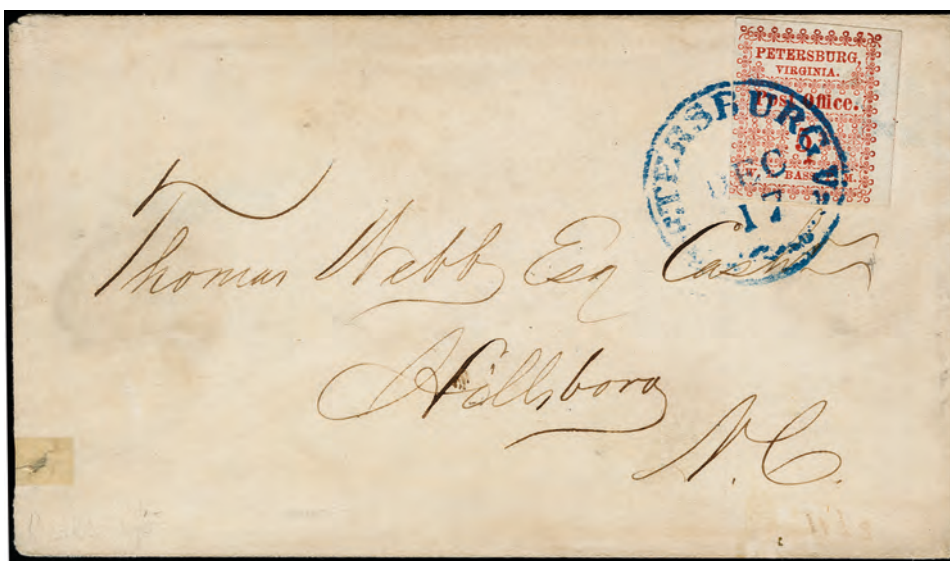 PETERSBURG,
VIRGINIA.
Post Office.
5
PETERSBURG VA
DEC
17
Thomas Webb Esq Cashr
Hillsboro
N.C.